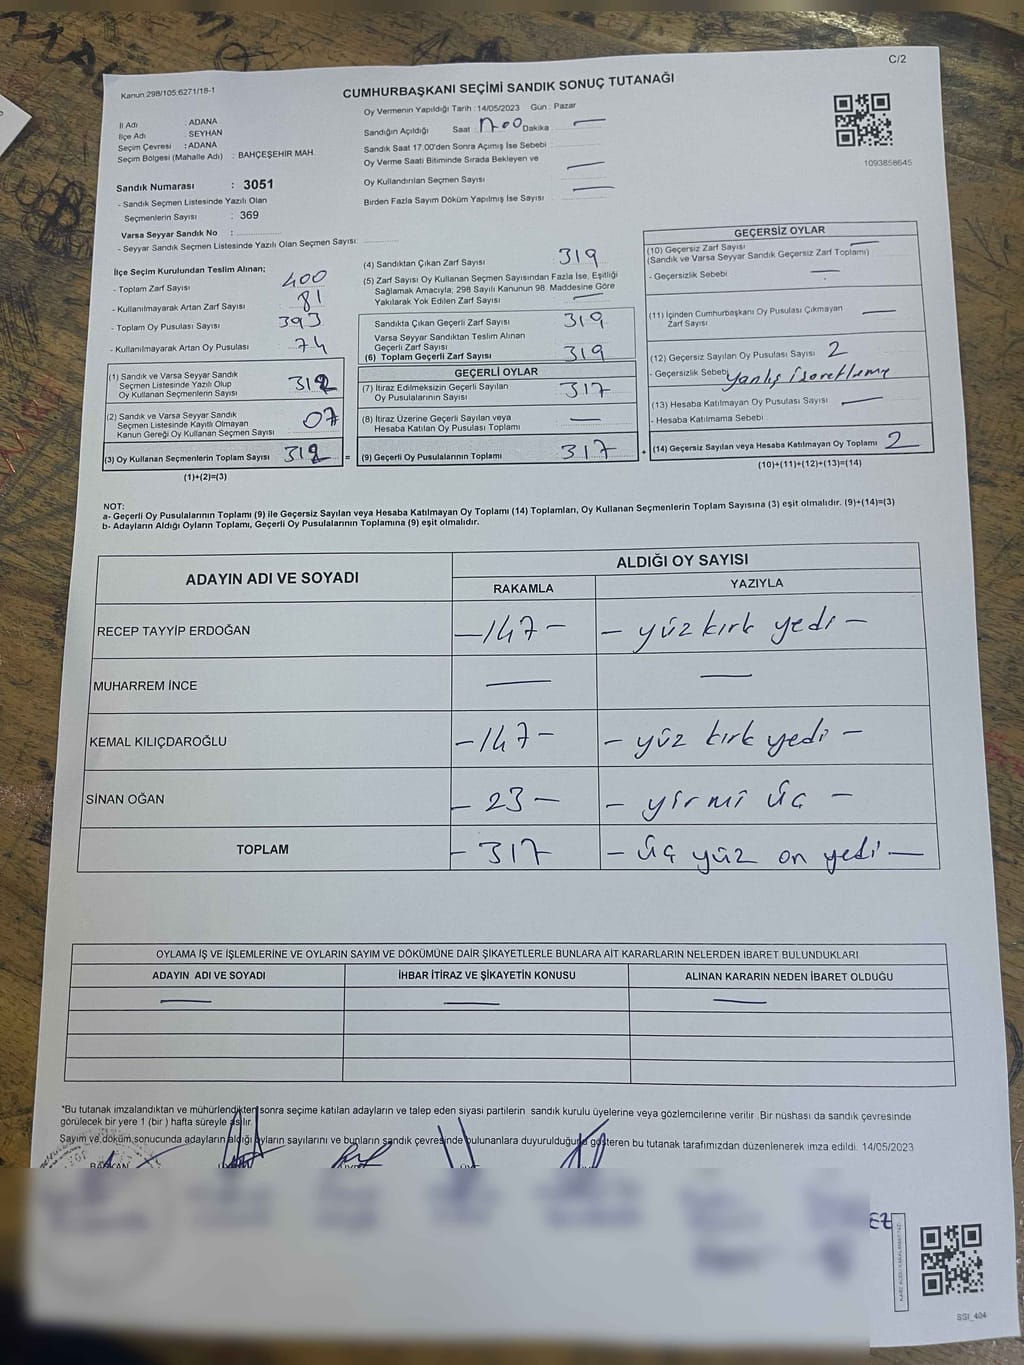 C/2
Kanun 298/105.6271/18-1
CUMHURBAŞKANI SEÇİMİ SANDIK SONUÇ TUTANAĞI
İl Adı : ADANA
İlçe Adı : SEYHAN
Seçim Çevresi : ADANA
Seçim Bölgesi (Mahalle Adı) : BAHÇEŞEHİR MAH.
Oy Vermenin Yapıldığı Tarih : 14/05/2023 Gün : Pazar
Sandığın Açıldığı Saat Dakika —
Sandık Saat 17.00'den Sonra Açımış İse Sebebi
Oy Verme Saati Bitiminde Sırada Bekleyen ve
Oy Kullandırılan Seçmen Sayısı —
Birden Fazla Sayım Döküm Yapılmış İse Sayısı —
1093858645
Sandık Numarası : 3051
- Sandık Seçmen Listesinde Yazılı Olan
Seçmenlerin Sayısı : 369
Varsa Seyyar Sandık No :
- Seyyar Sandık Seçmen Listesinde Yazılı Olan Seçmen Sayısı:
İlçe Seçim Kurulundan Teslim Alınan;
- Toplam Zarf Sayısı 400
- Kullanılmayarak Artan Zarf Sayısı 81
- Toplam Oy Pusulası Sayısı 393
- Kullanılmayarak Artan Oy Pusulası 74
(1) Sandık ve Varsa Seyyar Sandık
Seçmen Listesinde Yazılı Olup
Oy Kullanan Seçmenlerin Sayısı 312
(2) Sandık ve Varsa Seyyar Sandık
Seçmen Listesinde Kayıtlı Olmayan
Kanun Gereği Oy Kullanan Seçmen Sayısı 07
(3) Oy Kullanan Seçmenlerin Toplam Sayısı =
(1)+(2)=(3)
(4) Sandıktan Çıkan Zarf Sayısı 319
(5) Zarf Sayısı Oy Kullanan Seçmen Sayısından Fazla İse, Eşitliği
Sağlamak Amacıyla; 298 Sayılı Kanunun 98. Maddesine Göre
Yakılarak Yok Edilen Zarf Sayısı —
Sandıkta Çıkan Geçerli Zarf Sayısı 319
Varsa Seyyar Sandıktan Teslim Alınan
Geçerli Zarf Sayısı
(6) Toplam Geçerli Zarf Sayısı 319
GEÇERLİ OYLAR
(7) İtiraz Edilmeksizin Geçerli Sayılan
Oy Pusulalarının Sayısı 317
(8) İtiraz Üzerine Geçerli Sayılan veya
Hesaba Katılan Oy Pusulası Toplamı —
(9) Geçerli Oy Pusulalarının Toplamı 317 +
GEÇERSİZ OYLAR
(10) Geçersiz Zarf Sayısı —
(Sandık ve Varsa Seyyar Sandık Geçersiz Zarf Toplamı)
- Geçersizlik Sebebi —
(11) İçinden Cumhurbaşkanı Oy Pusulası Çıkmayan
Zarf Sayısı —
(12) Geçersiz Sayılan Oy Pusulası Sayısı 2
- Geçersizlik Sebebi Yanlış İşaretleme
(13) Hesaba Katılmayan Oy Pusulası Sayısı —
- Hesaba Katılmama Sebebi
(14) Geçersiz Sayılan veya Hesaba Katılmayan Oy Toplamı 2
(10)+(11)+(12)+(13)=(14)
NOT:
a- Geçerli Oy Pusulalarının Toplamı (9) ile Geçersiz Sayılan veya Hesaba Katılmayan Oy Toplamı (14) Toplamları, Oy Kullanan Seçmenlerin Toplam Sayısına (3) eşit olmalıdır. (9)+(14)=(3)
b- Adayların Aldığı Oyların Toplamı, Geçerli Oy Pusulalarının Toplamına (9) eşit olmalıdır.
ADAYIN ADI VE SOYADI
ALDIĞI OY SAYISI
RAKAMLA YAZIYLA
RECEP TAYYİP ERDOĞAN — 147 — — yüz kırk yedi —
MUHARREM İNCE — —
KEMAL KILIÇDAROĞLU — 147 — — yüz kırk yedi —
SİNAN OĞAN — 23 — — yirmi üç —
TOPLAM — 317 — üç yüz on yedi —
OYLAMA İŞ VE İŞLEMLERİNE VE OYLARIN SAYIM VE DÖKÜMÜNE DAİR ŞİKAYETLERLE BUNLARA AİT KARARLARIN NELERDEN İBARET BULUNDUKLARI
ADAYIN ADI VE SOYADI İHBAR İTİRAZ VE ŞİKAYETİN KONUSU ALINAN KARARIN NEDEN İBARET OLDUĞU
— — —
*Bu tutanak imzalandıktan ve mühürlendikten sonra seçime katılan adayların ve talep eden siyasi partilerin sandık kurulu üyelerine veya gözlemcilerine verilir. Bir nüshası da sandık çevresinde
görülecek bir yere 1 (bir) hafta süreyle asılır.
Sayım ve döküm sonucunda adayların aldığı oyların sayılarını ve bunların sandık çevresinde bulunanlara duyurulduğunu gösteren bu tutanak tarafımızdan düzenlenerek imza edildi. 14/05/2023
BAŞKAN
SSI_404